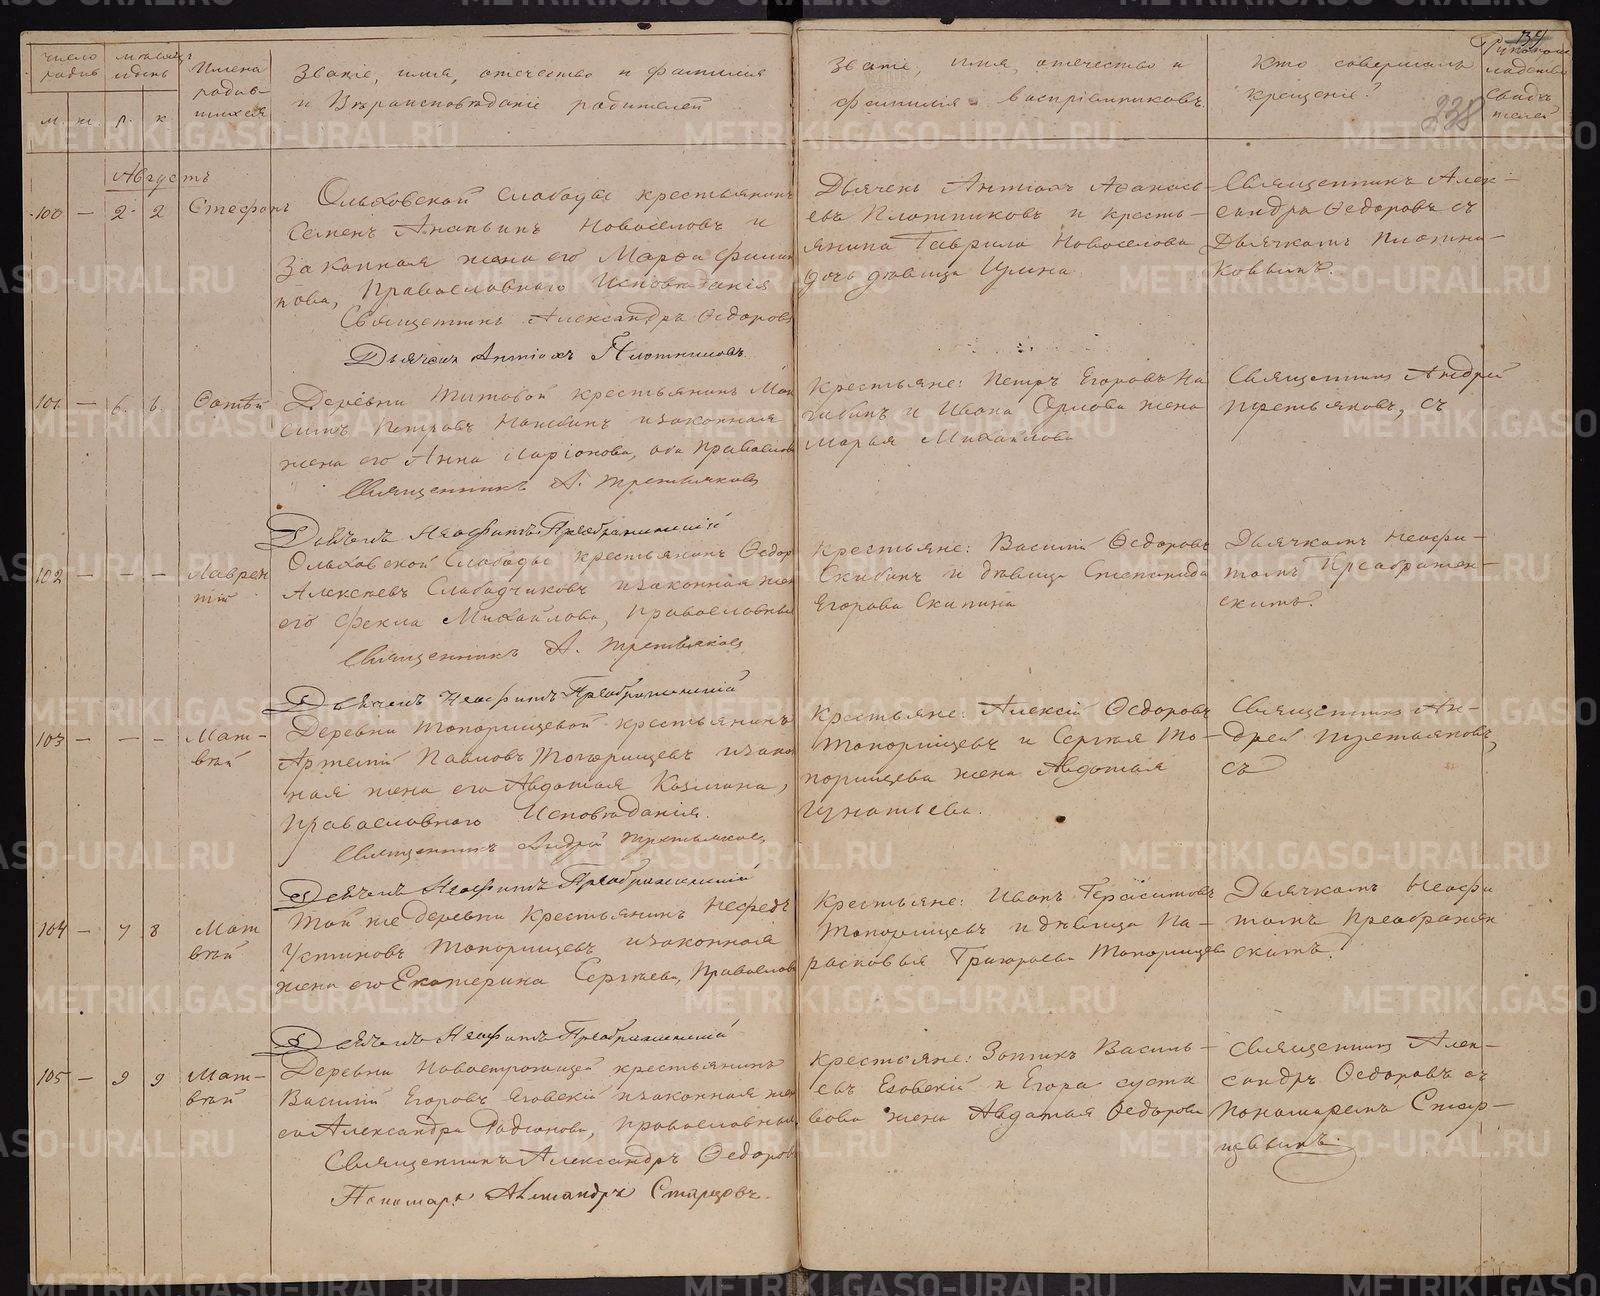 число родив
м. ж.
месяцъ и день
р. к.
Имена
родив-
шихся
Званіе, имя, отчество и фамилія
и Вѣроисповѣданіе родителей
Званіе, имя, отчество и
фамилія воспріемниковъ
Кто совершалъ
крещеніе?
134
238
Августъ
100 — 2 2 Стефанъ
Ольховской слободы крестьянинъ
Семенъ Ананьинъ Новоселовъ и
законная жена его Марѳа Филип
пова, Православнаго Исповѣданія
Священникъ Александръ Ѳедоровъ
Дьячекъ Антіохъ Плотниковъ
Дьячекъ Антіохъ Аѳанась-
евъ Плотниковъ и кресть-
янина Гаврила Новоселова
дочь дѣвица Ирина
Священникъ Алек-
сандръ Ѳедоровъ съ
Дьячкомъ Плотни-
ковымъ.
101 — 6. 6. Фотій
Деревни Титовой крестьянинъ Мои
сеій Петровъ Нагибинъ и законная
жена его Анна Ларіонова, оба Православн
Священникъ А. Третьяковъ
Дьячекъ Неофитъ Преображенскій
Крестьяне: Петръ Егоровъ На
гибинъ и Ивана Орлова жена
Марья Михайлова
Священникъ Андрей
Третьяковъ, съ
102 — — — Лаврен
тій
Ольховской Слободы крестьянинъ Ѳедоръ
Алексѣевъ Слободчиковъ и законная жена
его Фекла Михайлова, Православные
Священникъ А. Третьяковъ
Дьячекъ Неофитъ Преображенскій
Крестьяне: Василій Ѳедоровъ
Скибинъ и дѣвица Степанида
Егорова Скипина
Дьячкомъ Неофи-
томъ Преображен-
скимъ.
103 — — — Мат-
вѣй
Деревни Топорищевой крестьянинъ
Артемій Павловъ Топорищевъ и закон
ная жена его Авдотья Козмина,
Православнаго Исповѣданія.
Священникъ Андрей Третьяковъ
Дьячекъ Неофитъ Преображенскій
Крестьяне: Алексій Ѳедоровъ
Топорищевъ и Сергѣя То-
порищева жена Авдотья
Игнатьева.
Священникъ Ан-
дрей Третьяковъ,
съ
104 — 7 8 Мат
вѣй
Той же деревни крестьянинъ Нефедъ
Устиновъ Топорищевъ и законная
жена его Екатерина Сергѣева, Православ
Дьячекъ Неофитъ Преображенскій
Крестьяне: Иванъ Герасимовъ
Топорищевъ и дѣвица Па-
расковья Григорьева Топорищева
Дьячкомъ Неофи
томъ Преображен
скимъ.
105 — 9 9 Мат-
вѣй
Деревни крестьянинъ
Василій Егоровъ Езовскій и законная жена
его Александра Родіонова, Православные
Священникъ Александръ Ѳедоровъ
Пономарь Александръ Старцовъ.
Крестьяне: Зотикъ Василь-
евъ Езовскій и Егора Суста
вова жена Авдотья Ѳедорова
Священникъ Алек-
сандръ Ѳедоровъ съ
Пономаремъ Стар-
цевымъ.
METRIKI.GASO-URAL.RU